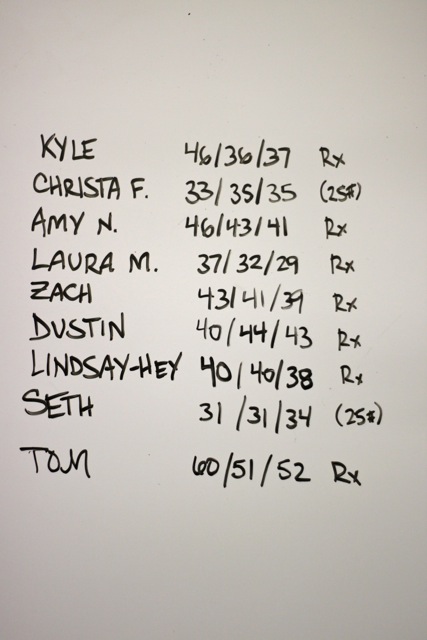 KYLE 46/36/37 Rx
CHRISTA F. 33/35/35 (25#)
AMY N. 46/43/41 Rx
LAURA M. 37/32/29 Rx
ZACH 43/41/39 Rx
DUSTIN 40/44/43 Rx
LINDSAY-HEY 40/40/38 Rx
SETH 31/31/34 (25#)
TOM 60/51/52 Rx